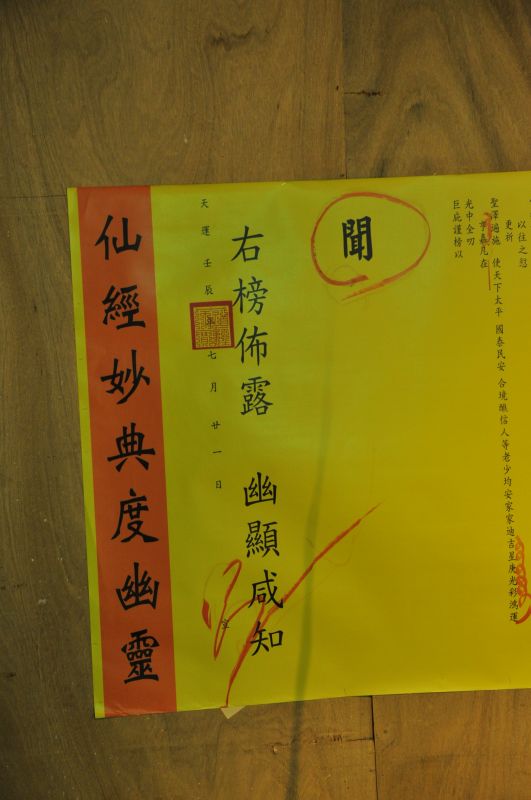 以往之愆
更祈
聖澤遍施 使天下太平 國泰民安 合境醮信人等老少均安家家迪吉星庚光彩鴻運
凡在
光中全叨
巨庇謹榜以
聞
右榜佈露 幽顯咸知
天運壬辰年七月廿一日
仙經妙典度幽靈